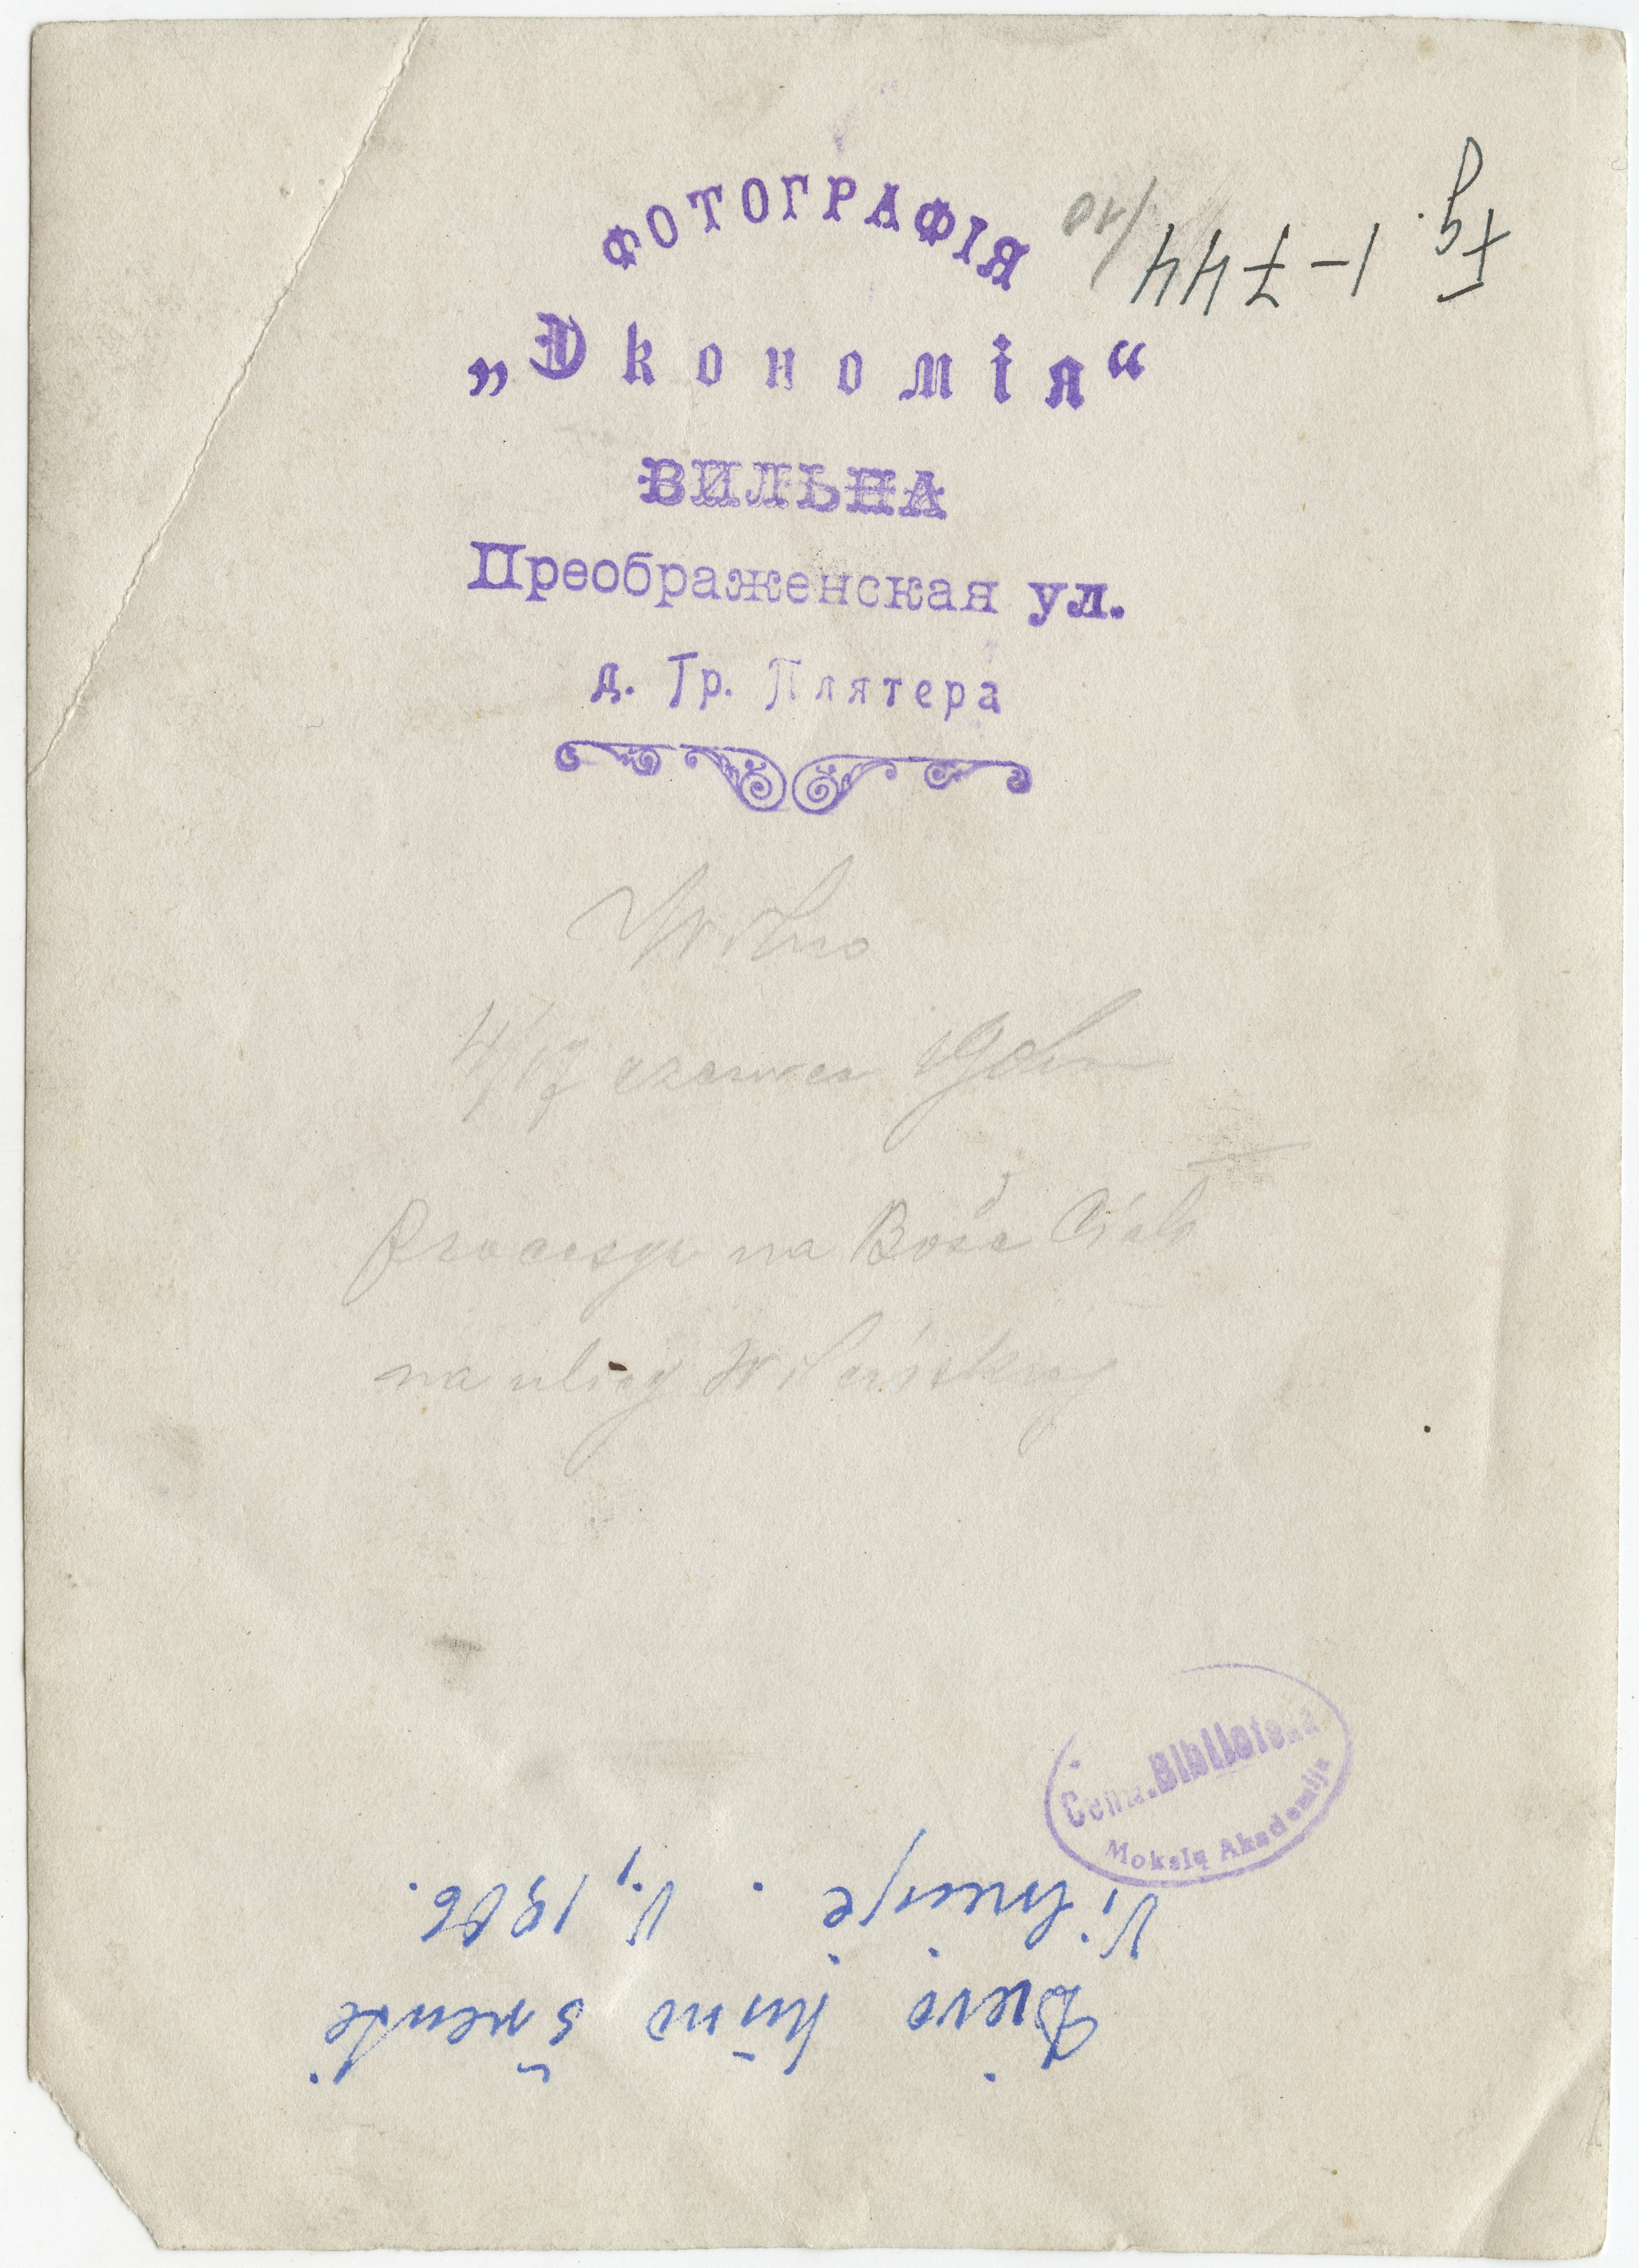 ФОТОГРАФІЯ
Fg. 1-744/10
„Экономія“
ВИЛЬНА
Преображенская ул.
д. Гр. Плятера
Wilno
4/17 czerwca
Procesya na Boże Ciało
na ulicy Wileńskiej
Centr. Biblioteka
Mokslų Akademija
Dievo kūno šventė
Vilniuje. V., 1906.